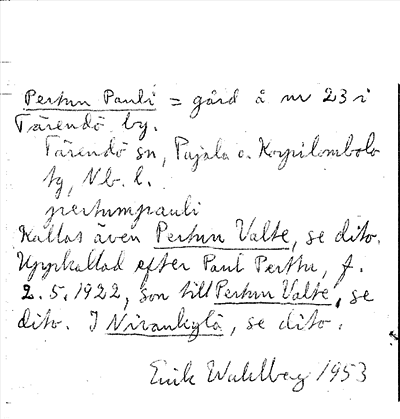 Perttun Pauli = gård å nr 23 i
Tärendö by.
Tärendö sn, Pajala o. Korpilombolo
tg, Nb. l.
pertumpauli
Kallas även Pertun Valte, se dito.
Uppkallad efter Paul Perttu, f.
2.5.1922, son till Pertun Valte, se
dito. I Nivankylä, se dito.
Erik Wahlberg 1953